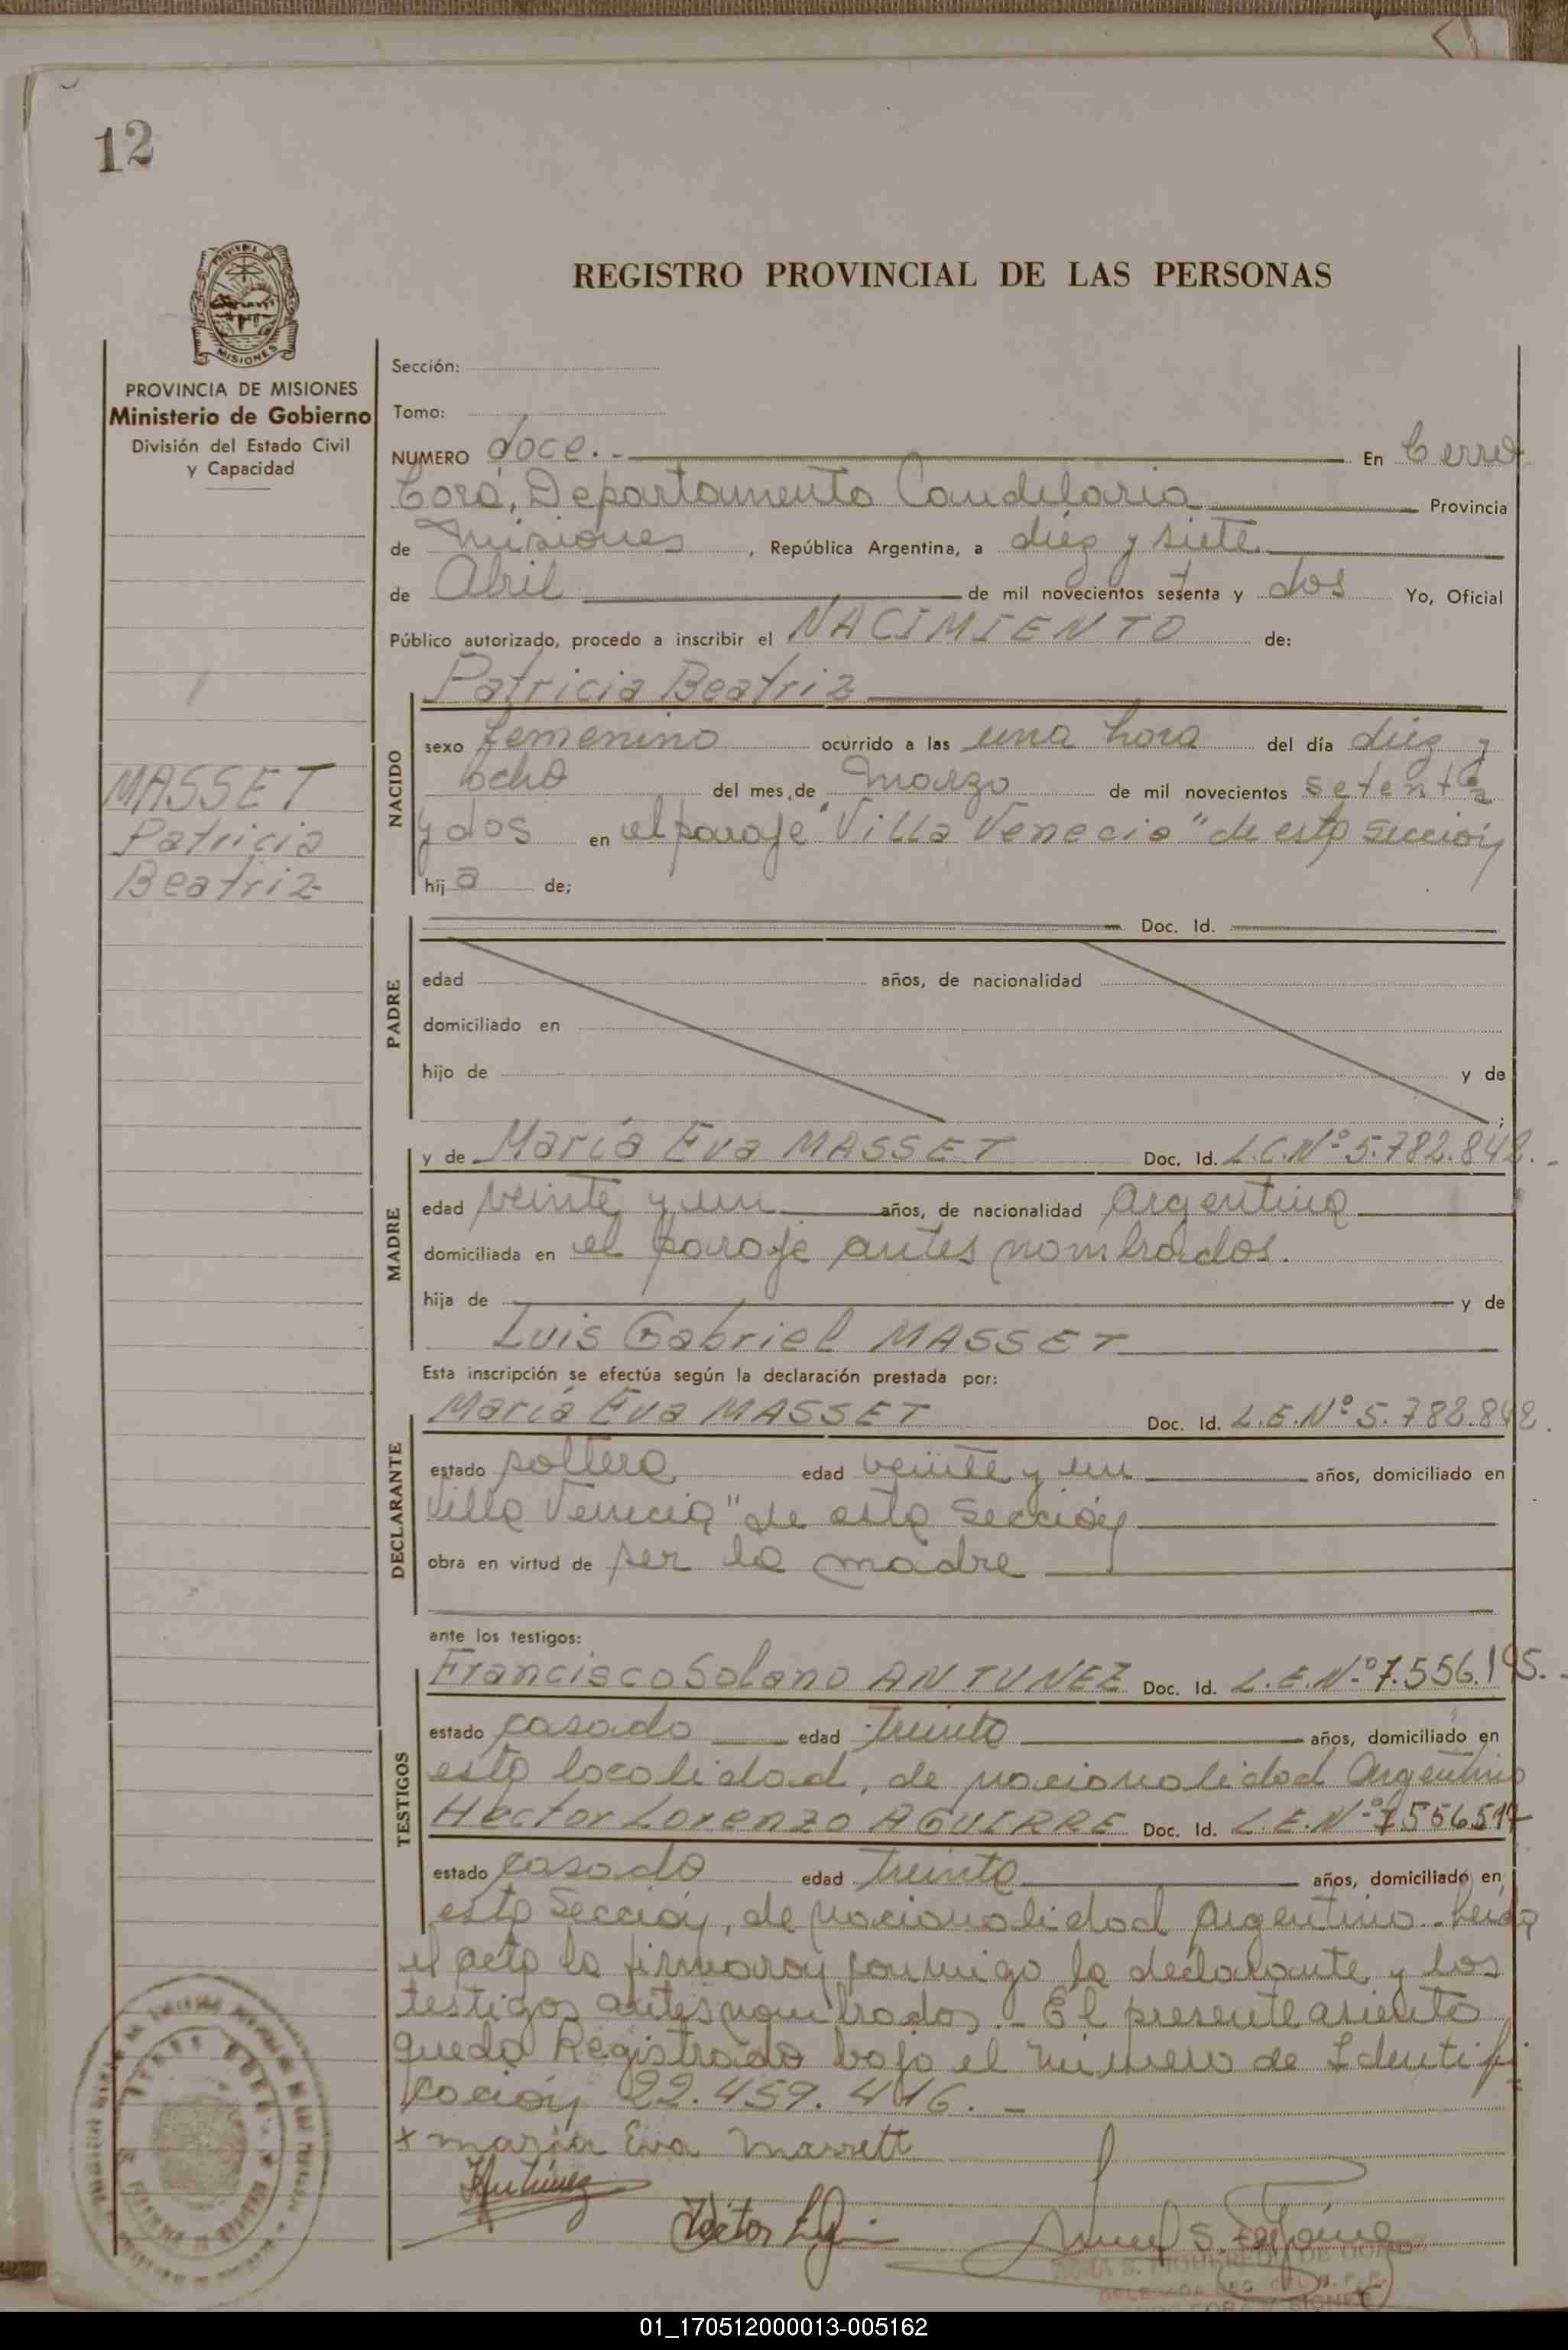 12
PROVINCIA DE
MISIONES
REGISTRO PROVINCIAL DE LAS PERSONAS
PROVINCIA DE MISIONES
Ministerio de Gobierno
División del Estado Civil
y Capacidad
Sección:
Tomo:
NUMERO doce.- En Cerro
Corá, Departamento Candelaria Provincia
de Misiones, República Argentina, a diez y siete
de Abril de mil novecientos setenta y dos Yo, Oficial
Público autorizado, procedo a inscribir el NACIMIENTO de:
Patricia Beatriz
NACIDO
sexo femenino ocurrido a las una hora del día diez y
ocho del mes de Marzo de mil novecientos setenta
y dos en el paraje "Villa Venecia" de esta sección
hija de;
MASSET
Patricia
Beatriz
PADRE
Doc. Id.
edad años, de nacionalidad
domiciliado en
hijo de y de
;
MADRE
y de María Eva MASSET Doc. Id. L.C.Nº 5.782.842.-
edad veinte y un años, de nacionalidad Argentina
domiciliada en el paraje antes nombrados.
hija de y de
Luis Gabriel MASSET
Esta inscripción se efectúa según la declaración prestada por:
DECLARANTE
María Eva MASSET Doc. Id. L.E.Nº 5.782.842.
estado soltera edad veinte y un años, domiciliado en
Villa Venecia" de esta Sección
obra en virtud de ser la madre
ante los testigos:
TESTIGOS
Francisco Solano ANTUNEZ Doc. Id. L.E.Nº 7.556.195.-
estado casado edad treinta años, domiciliado en
esta localidad, de nacionalidad Argentino
Hector Lorenzo AGUIRRE Doc. Id. L.E.Nº 7.556.517
estado casado edad treinta años, domiciliado en
esta Sección, de nacionalidad Argentino. Leida
el acta la firmaron conmigo la declarante y los
testigos antes nombrados.- El presente asiento
queda Registrado bajo el número de Identifi=
cación 22.459.416.-
x maria Eva massett
Antúnez
Hector
01_170512000013-005162